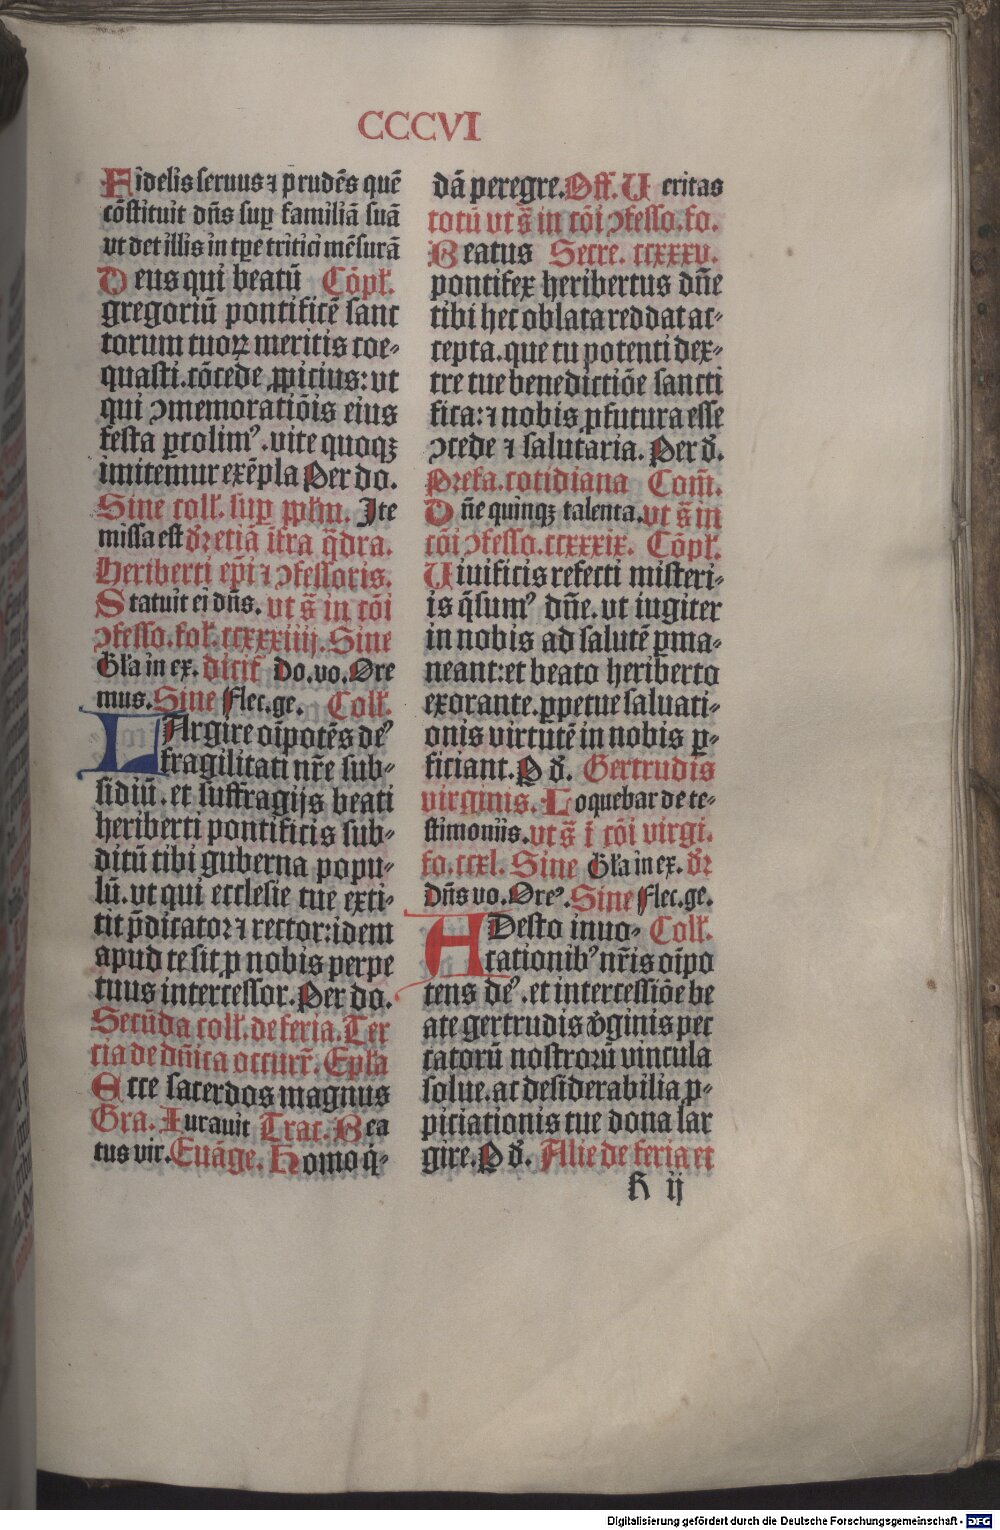 CCCVI
Fidelis seruus ⁊ prudēs quē
cōstituit dn̄s suꝑ familiā suā
vt det illis in tꝑe tritici mēsurā
Deus qui beatū Cōpl̄.
gregoriū pontificē sanc
torum tuoꝝ meritis coe-
quasti.cōcede ꝓpicius: vt
qui ↄmemoratiōis eius
festa ꝑcolimꝰ.vite quoqꝫ
imitemur exēpla Per do.
Sine coll̄. suꝑ pp̄lm. Ite
missa est dr̄ etiā īfra q̄dra.
Heriberti ep̄i ⁊ ↄfessoris.
Statuit ei dn̄s. vt s̄ in cōi
ↄfesso.fol̄. ccxxxiiij. Sine
Gl̄a in ex. dicit̄ Do.vo.Ore
mus.Sine Flec.ge. Coll̄.
LArgire oīpotēs deꝰ
fragilitati nr̄e sub-
sidiū.et suffragijs beati
heriberti pontificis sub-
ditū tibi guberna popu-
lū.vt qui ecclesie tue exti-
tit p̄dicator ⁊ rector:idem
apud te sit ꝓ nobis perpe
tuus intercessor. Per do.
Secūda coll̄. de feria. Ter
cia de dn̄ica occurr̄. Epl̄a
Ecce sacerdos magnus
Gra. Iurauit Trac. Bea
tus vir. Euāge. Homo q̇-
dā peregre. Off. Ueritas
totū vt s̄ in cōi ↄfesso.fo.
Beatus Secre. ccxxxv.
pontifex heribertus dn̄e
tibi hec oblata reddat ac-
cepta.que tu potenti dex-
tre tue benedictiōe sancti
fica:⁊ nobis ꝓfutura esse
ↄcede ⁊ salutaria. Per d̄.
Prefa.cotidiana Com̄.
Dn̄e quinqꝫ talenta. vt s̄ in
cōi ↄfesso.ccxxxix. Cōpl̄.
Uiuificis refecti misteri-
is q̄sumꝰ dn̄e.vt iugiter
in nobis ad salutē ꝑma-
neant:et beato heriberto
exorante.ꝑpetue saluati-
onis virtutē in nobis ꝑ-
ficiant. P d̄. Gertrudis
virginis. Loquebar de te-
stimoniis. vt s̄ ī cōi virgi.
fo.ccxl. Sine Gl̄a in ex. dr̄
dn̄s vo.Oreꝰ. Sine Flec.ge.
ADesto inuo- Coll̄.
cationibꝰ nr̄is oīpo
tens deꝰ.et intercessiōe be
ate gertrudis v̄ginis pec
catorū nostrorū vincula
solue.ac desiderabilia ꝓ-
piciationis tue dona lar
gire. P d̄. Alie de feria et
h ij
Digitalisierung gefördert durch die Deutsche Forschungsgemeinschaft - DFG